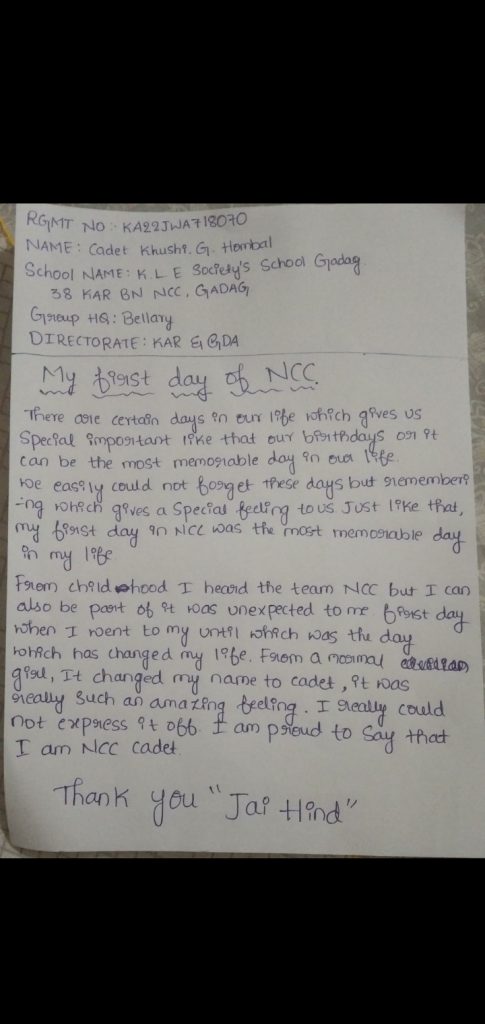 RGMT NO :- KA22JWA718070
NAME : Cadet Khushi. G. Hombal
School NAME : K. L. E Society's School Gadag.
38 KAR BN NCC, GADAG
Group HQ : Bellary
DIRECTORATE : KAR & GOA
My first day of NCC.
There are certain days in our life which gives us
Special important like that our birthdays or it
can be the most memorable day in our life.
We easily could not forget these days but rememberi
-ng which gives a Special feeling to us. Just like that,
my first day in NCC was the most memorable day
in my life
From childhood I heard the team NCC but I can
also be part of it was unexpected to me first day
when I went to my until which was the day
which has changed my life. From a normal
girl, It changed my name to cadet, it was
really such an amazing feeling. I really could
not express it off. I am proud to Say that
I am NCC cadet.
Thank you "Jai Hind"